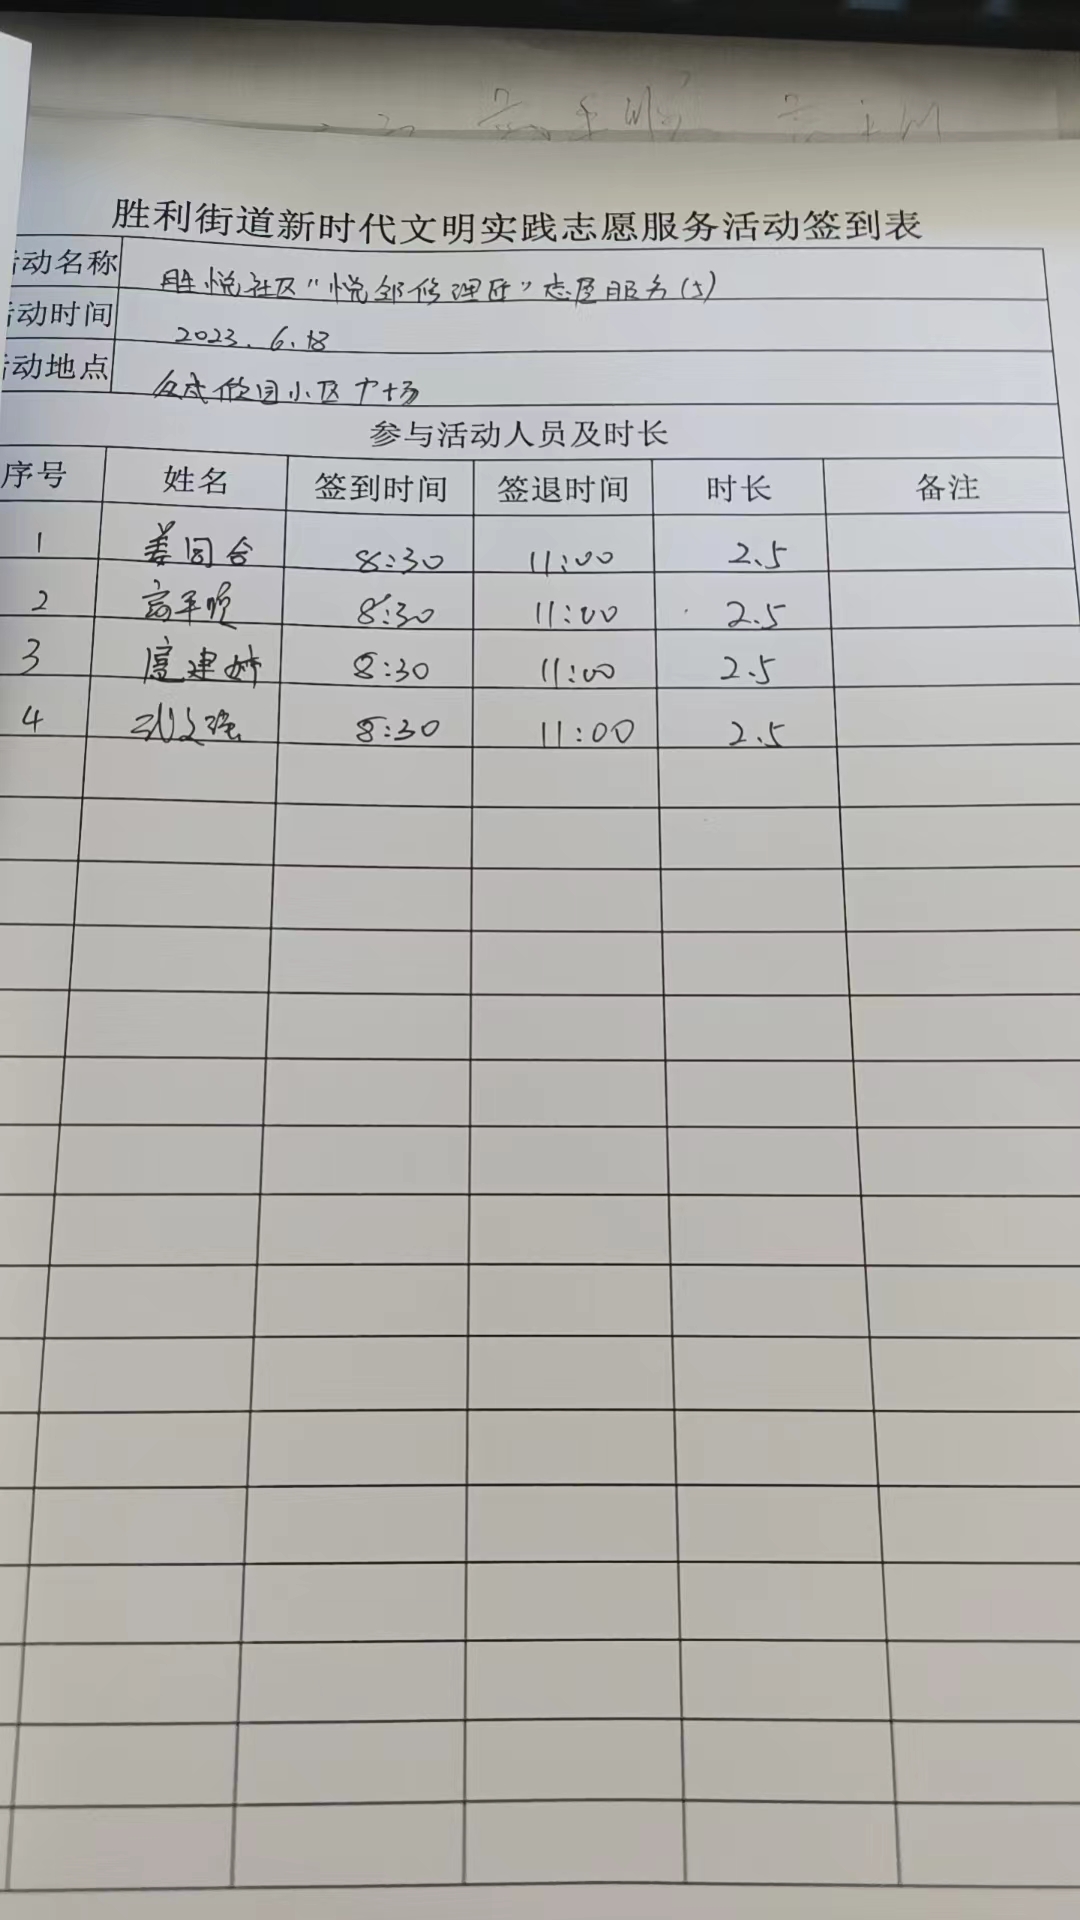 胜利街道新时代文明实践志愿服务活动签到表
活动名称 胜悦社区"悦邻修理匠"志愿服务(5)
活动时间 2023.6.18
活动地点 小区
参与活动人员及时长
序号 姓名 签到时间 签退时间 时长 备注
1 姜同合 8:30 11:00 2.5
2 高平顺 8:30 11:00 2.5
3 建 8:30 11:00 2.5
4 文强 8:30 11:00 2.5